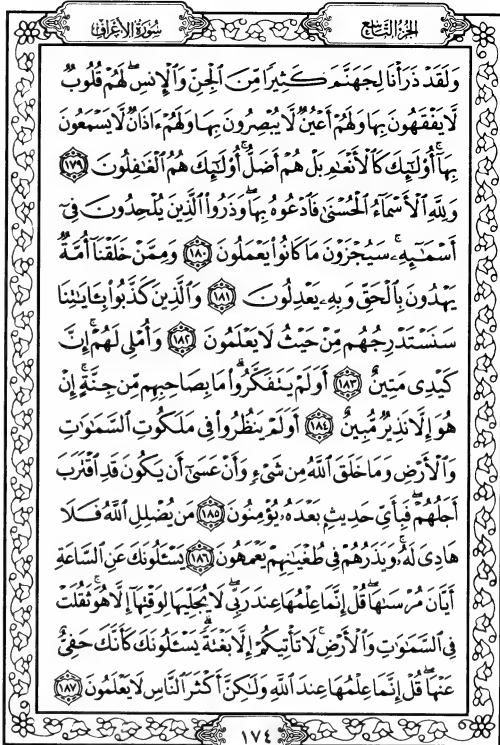 الجزء التاسع
سورة الأعراف
وَلَقَدْ ذَرَأْنَا لِجَهَنَّمَ كَثِيرًا مِّنَ الْجِنِّ وَالْإِنسِ ۖ لَهُمْ قُلُوبٌ
لَّا يَفْقَهُونَ بِهَا وَلَهُمْ أَعْيُنٌ لَّا يُبْصِرُونَ بِهَا وَلَهُمْ ءَاذَانٌ لَّا يَسْمَعُونَ
بِهَا ۚ أُو۟لَٰٓئِكَ كَالْأَنْعَٰمِ بَلْ هُمْ أَضَلُّ ۚ أُو۟لَٰٓئِكَ هُمُ الْغَٰفِلُونَ ١٧٩
وَلِلَّهِ الْأَسْمَآءُ الْحُسْنَىٰ فَادْعُوهُ بِهَا ۖ وَذَرُوا۟ الَّذِينَ يُلْحِدُونَ فِىٓ
أَسْمَٰٓئِهِۦ ۚ سَيُجْزَوْنَ مَا كَانُوا۟ يَعْمَلُونَ ١٨٠ وَمِمَّنْ خَلَقْنَآ أُمَّةٌ
يَهْدُونَ بِالْحَقِّ وَبِهِۦ يَعْدِلُونَ ١٨١ وَالَّذِينَ كَذَّبُوا۟ بِـَٔايَٰتِنَا
سَنَسْتَدْرِجُهُم مِّنْ حَيْثُ لَا يَعْلَمُونَ ١٨٢ وَأُمْلِى لَهُمْ ۚ إِنَّ
كَيْدِى مَتِينٌ ١٨٣ أَوَلَمْ يَتَفَكَّرُوا۟ ۗ مَا بِصَاحِبِهِم مِّن جِنَّةٍ ۚ إِنْ
هُوَ إِلَّا نَذِيرٌ مُّبِينٌ ١٨٤ أَوَلَمْ يَنظُرُوا۟ فِى مَلَكُوتِ السَّمَٰوَٰتِ
وَالْأَرْضِ وَمَا خَلَقَ اللَّهُ مِن شَىْءٍ وَأَنْ عَسَىٰٓ أَن يَكُونَ قَدِ اقْتَرَبَ
أَجَلُهُمْ ۖ فَبِأَىِّ حَدِيثٍۭ بَعْدَهُۥ يُؤْمِنُونَ ١٨٥ مَن يُضْلِلِ اللَّهُ فَلَا
هَادِىَ لَهُۥ ۚ وَيَذَرُهُمْ فِى طُغْيَٰنِهِمْ يَعْمَهُونَ ١٨٦ يَسْـَٔلُونَكَ عَنِ السَّاعَةِ
أَيَّانَ مُرْسَىٰهَا ۖ قُلْ إِنَّمَا عِلْمُهَا عِندَ رَبِّى ۖ لَا يُجَلِّيهَا لِوَقْتِهَآ إِلَّا هُوَ ۚ ثَقُلَتْ
فِى السَّمَٰوَٰتِ وَالْأَرْضِ ۚ لَا تَأْتِيكُمْ إِلَّا بَغْتَةً ۗ يَسْـَٔلُونَكَ كَأَنَّكَ حَفِىٌّ
عَنْهَا ۖ قُلْ إِنَّمَا عِلْمُهَا عِندَ اللَّهِ وَلَٰكِنَّ أَكْثَرَ النَّاسِ لَا يَعْلَمُونَ ١٨٧
١٧٤